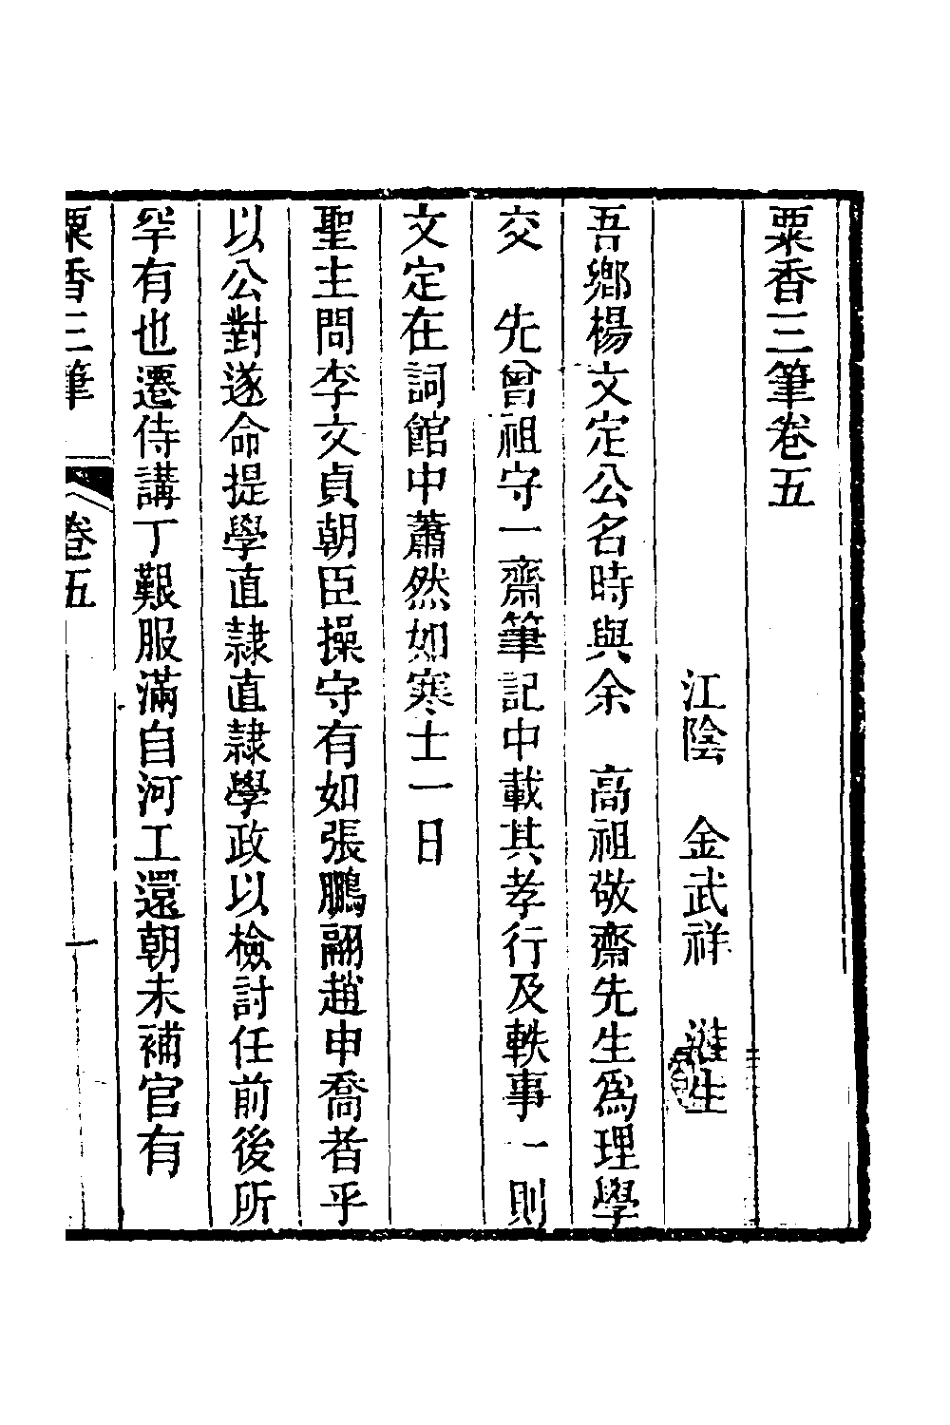 粟香三筆卷五
江陰　金武祥　溎生
吾鄉楊文定公名時與余　高祖敬齋先生爲理學
交　先曾祖守一齋筆記中載其孝行及軼事一則
文定在詞館中蕭然如寒士一日
聖主問李文貞朝臣操守有如張鵬翮趙申喬者乎
以公對遂命提學直隸直隸學政以檢討任前後所
罕有也遷侍講丁艱服滿自河工還朝未補官有
粟香三筆　卷五　一